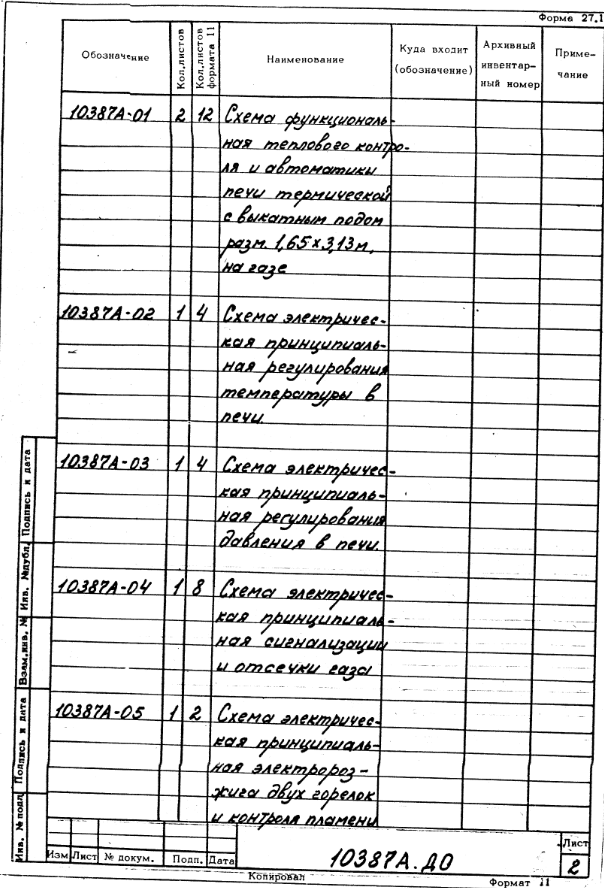 Форма 27.1
Обозначение
Кол.листов
Кол.листов формата 11
Наименование
Куда входит (обозначение)
Архивный инвентар-ный номер
Приме-чание
10387А-01 2 12 Схема функциональ-
ная теплового контро-
ля и автоматики
печи термической
с выкатным подом
разм. 1,65х3,13м,
на газе
10387А-02 1 4 Схема электричес-
кая принципиаль-
ная регулирования
температуры в
печи.
10387А-03 1 4 Схема электричес-
кая принципиаль-
ная регулирования
давления в печи.
10387А-04 1 8 Схема электричес-
кая принципиаль-
ная сигнализации
и отсечки газа
10387А-05 1 2 Схема электричес-
кая принципиаль-
ная электророз-
жига двух горелок
и контроля пламени
Инв. № подл
Подпись и дата
Взам.инв. №
Инв. №дубл.
Подпись и дата
Изм Лист № докум. Подп. Дата
10387А.ДО
Лист
2
Копировал
Формат 11